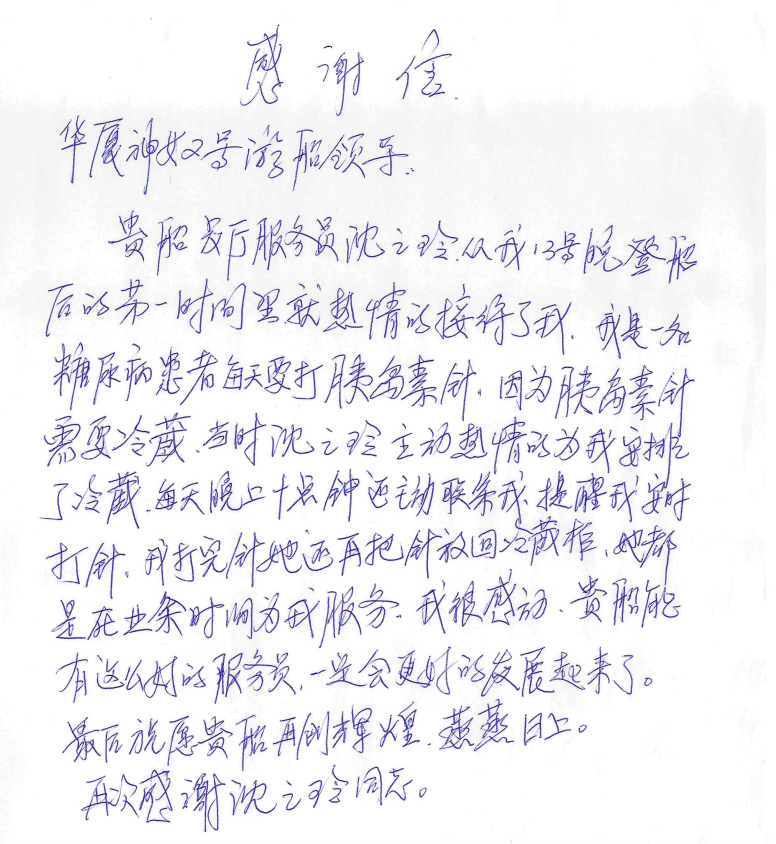 感谢信
华厦神女2号游船领导.
贵船员厅服务员沈之玲.从我13号晚登船
后的第一时间里就热情的接待了我.我是一名
糖尿病患者每天要打胰岛素针.因为胰岛素针
需要冷藏.当时沈之玲主动热情的为我安排
了冷藏.每天晚上十点钟还主动联系我.提醒我安时
打针.我打完针她还再把针放回冷藏柜.她都
是在业余时间为我服务.我很感动.贵船能
有这么好的服务员.一定会更好的发展起来了。
最后祝愿贵船再创辉煌.蒸蒸日上。
再次感谢沈之玲同志。